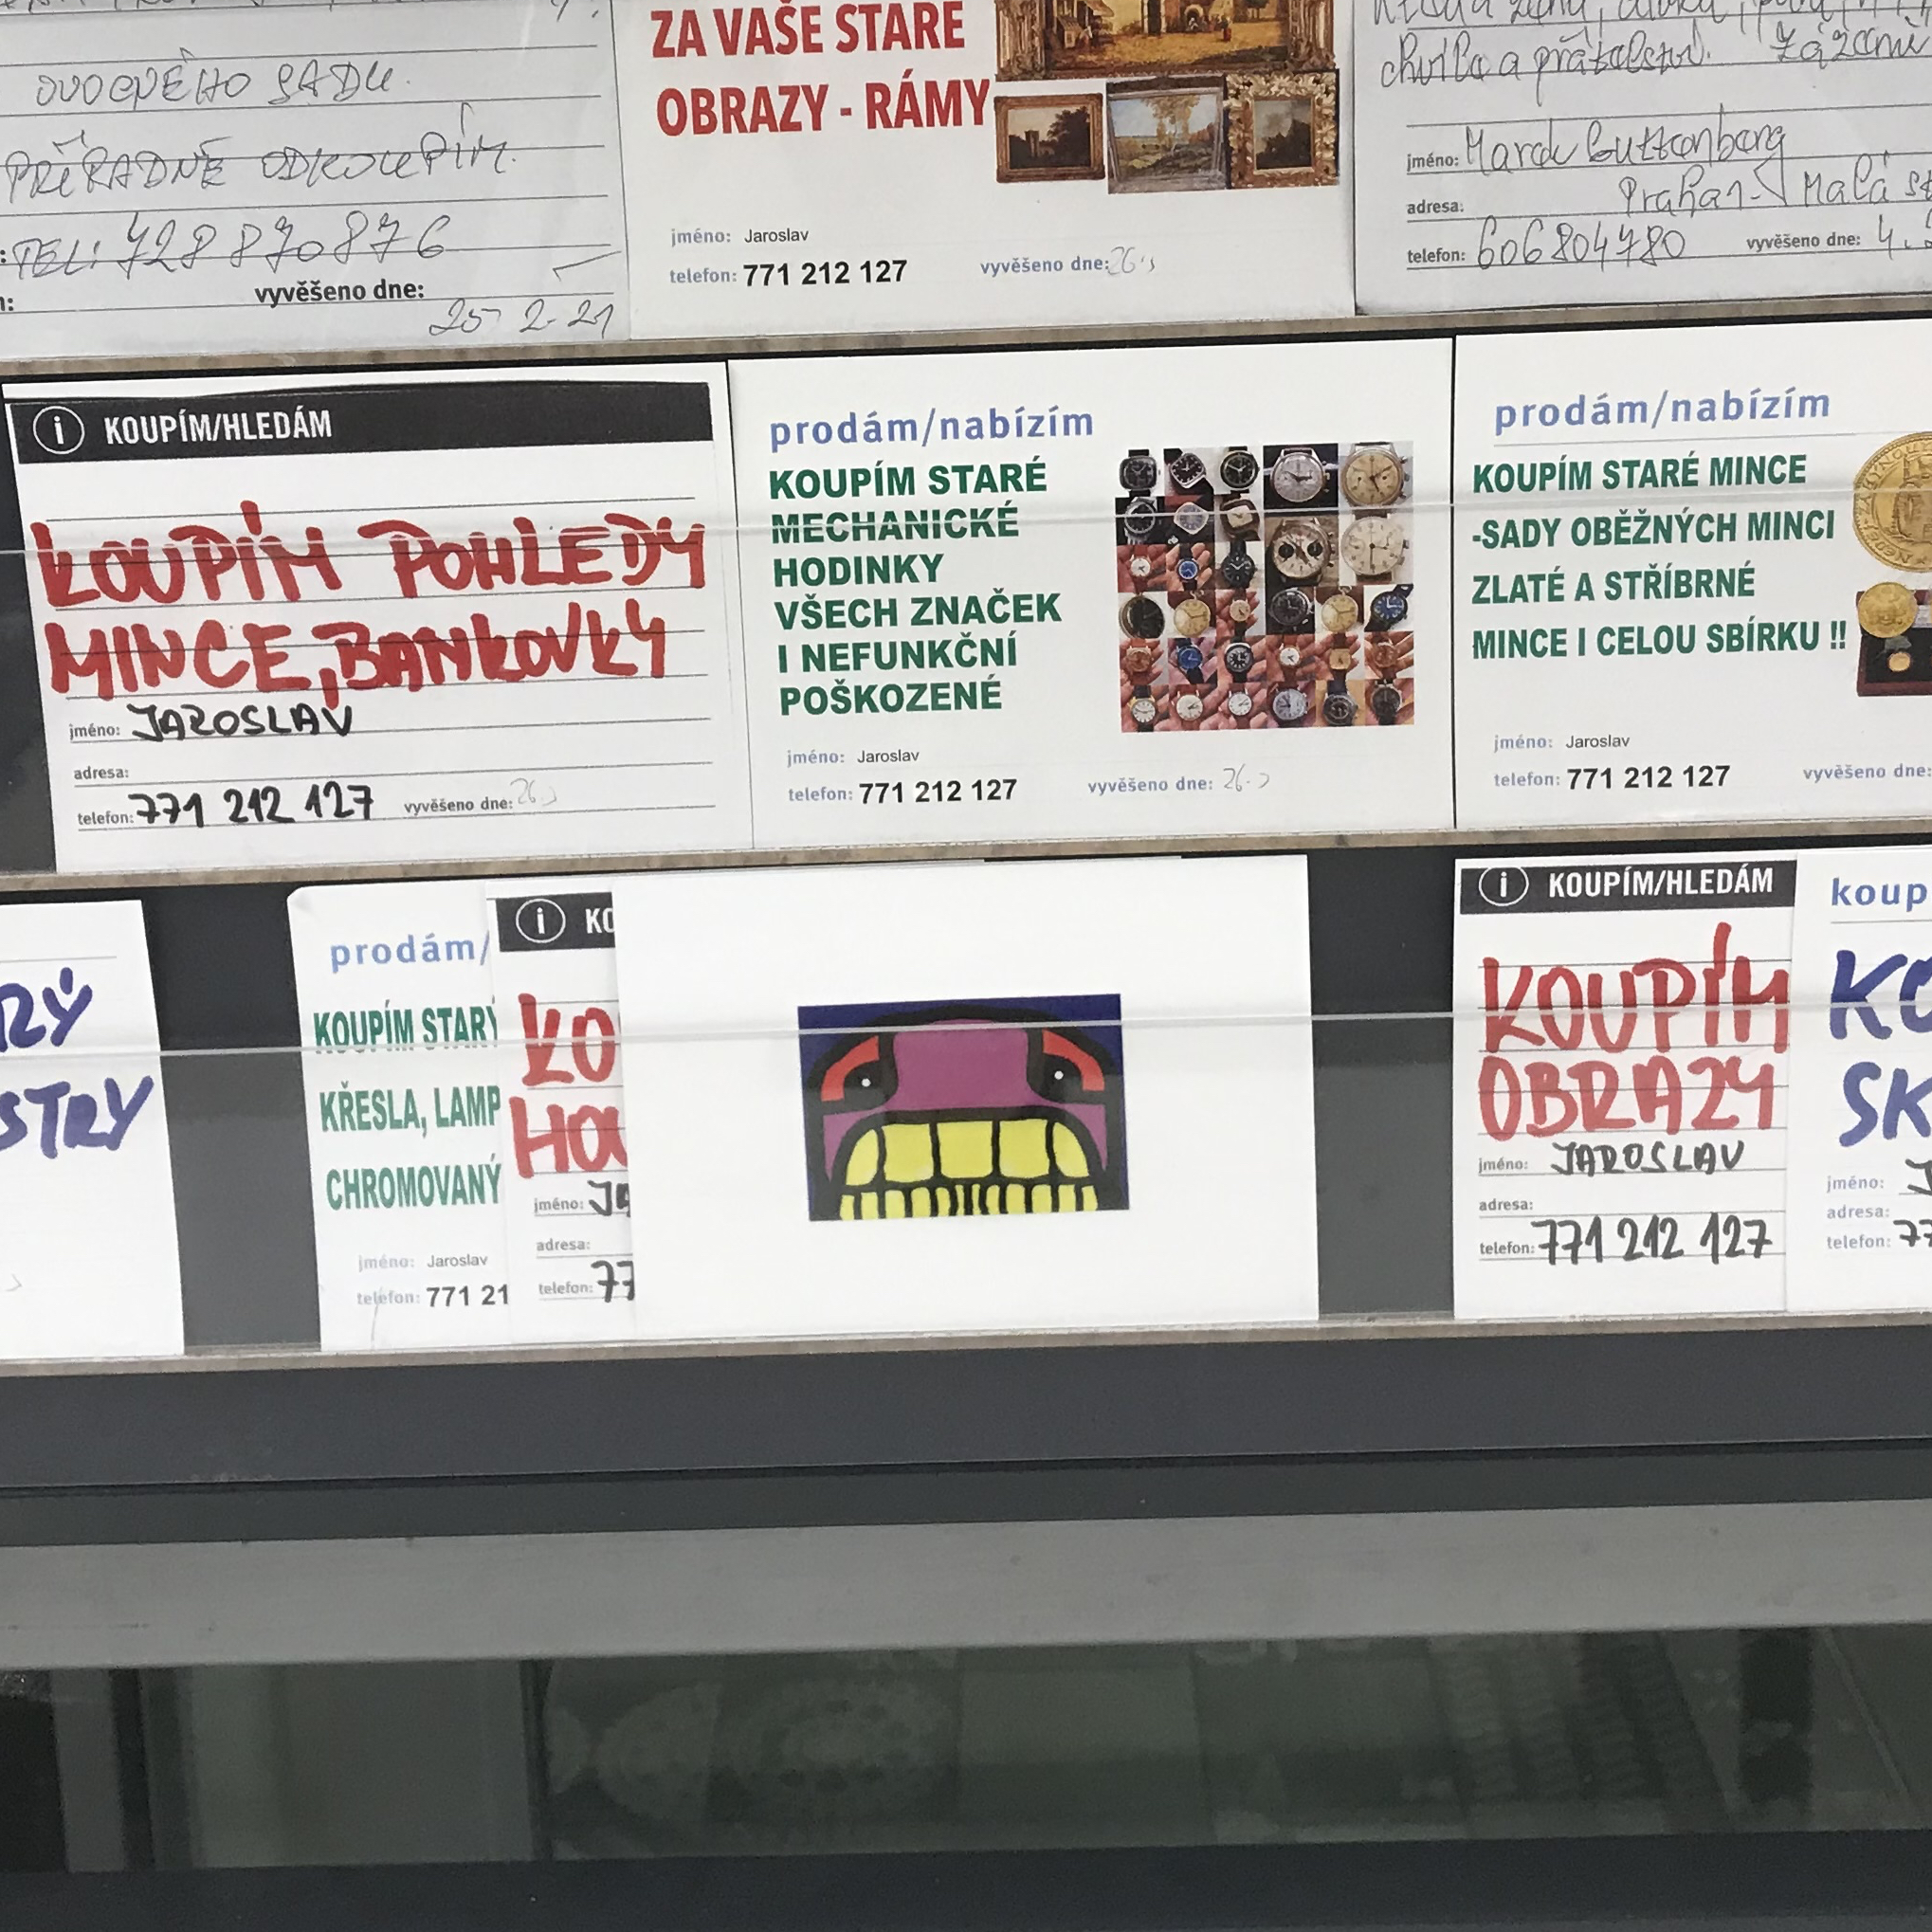 OVOCNÉHO SADU.
PŘÍPADNĚ ODKOUPÍM.
TEL: 728 870 876
vyvěšeno dne:
25 2-21
ZA VAŠE STARÉ
OBRAZY - RÁMY
jméno: Jaroslav
telefon: 771 212 127 vyvěšeno dne: 26.
chvilka a přátelství.
jméno: Marek Guttenberg
adresa: Praha 1- Malá
telefon: 606804780 vyvěšeno dne: 4.
i KOUPÍM/HLEDÁM
KOUPÍM POHLEDY
MINCE, BANKOVKY
jméno: JAROSLAV
adresa:
telefon: 771 212 127 vyvěšeno dne: 26.
prodám/nabízím
KOUPÍM STARÉ
MECHANICKÉ
HODINKY
VŠECH ZNAČEK
I NEFUNKČNÍ
POŠKOZENÉ
jméno: Jaroslav
telefon: 771 212 127 vyvěšeno dne: 26.
prodám/nabízím
KOUPÍM STARÉ MINCE
-SADY OBĚŽNÝCH MINCI
ZLATÉ A STŘÍBRNÉ
MINCE I CELOU SBÍRKU !!
jméno: Jaroslav
telefon: 771 212 127 vyvěšeno dne:
RÝ
STRY
prodám/
KOUPÍM STARÝ
KŘESLA, LAMP
CHROMOVANÝ
jméno: Jaroslav
telefon: 771 21
i KO
KO
HO
jméno: JA
adresa:
telefon: 77
i KOUPÍM/HLEDÁM
KOUPÍM
OBRAZY
jméno: JAROSLAV
adresa:
telefon: 771 212 127
koup
KO
SK
jméno: J
adresa:
telefon: 77